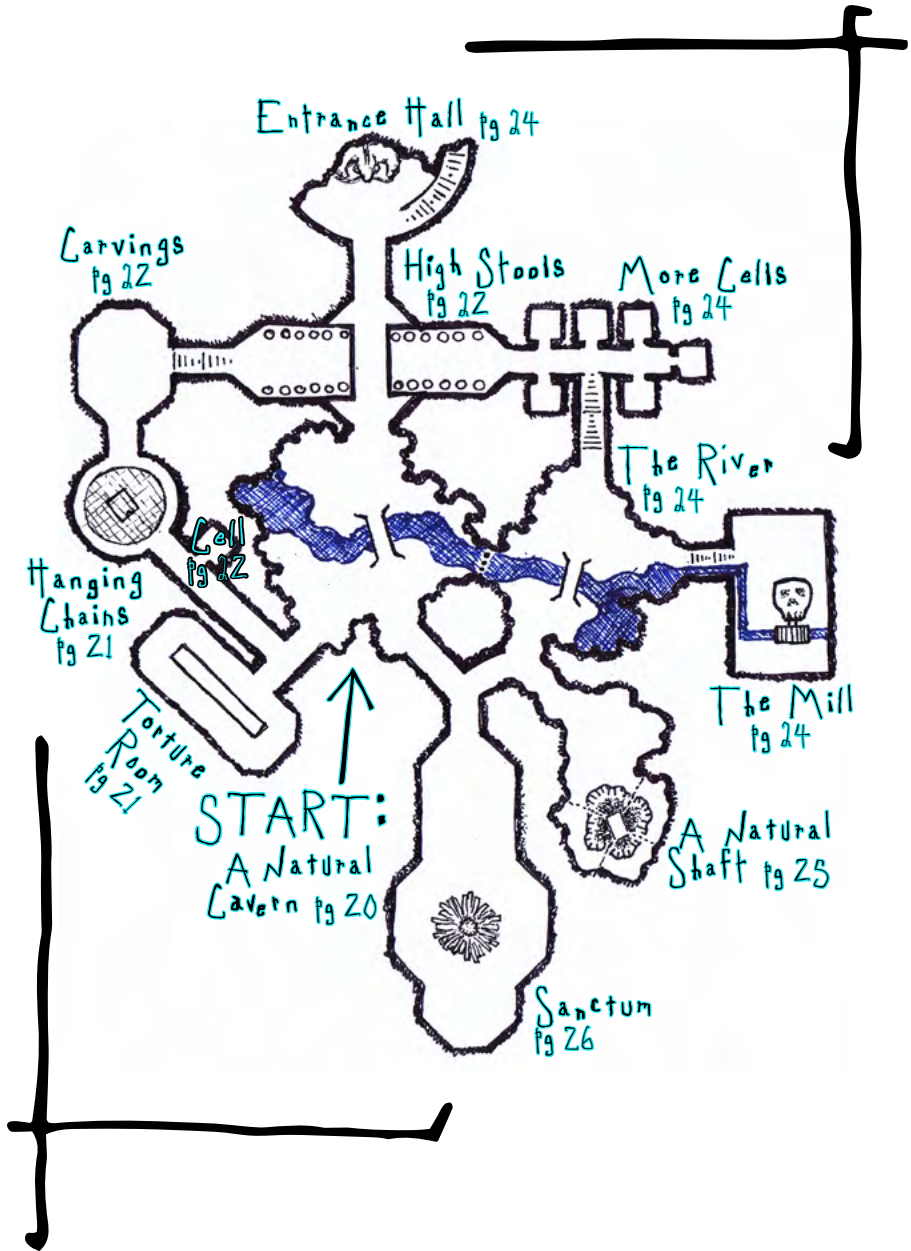 Entrance Hall pg 24
Carvings
pg 22
High Stools
pg 22
More Cells
pg 24
The River
pg 24
Cell
pg 22
Hanging
Chains
pg 21
Torture
Room
pg 21
The Mill
pg 24
START:
A Natural
Cavern pg 20
A Natural
Shaft pg 25
Sanctum
pg 26